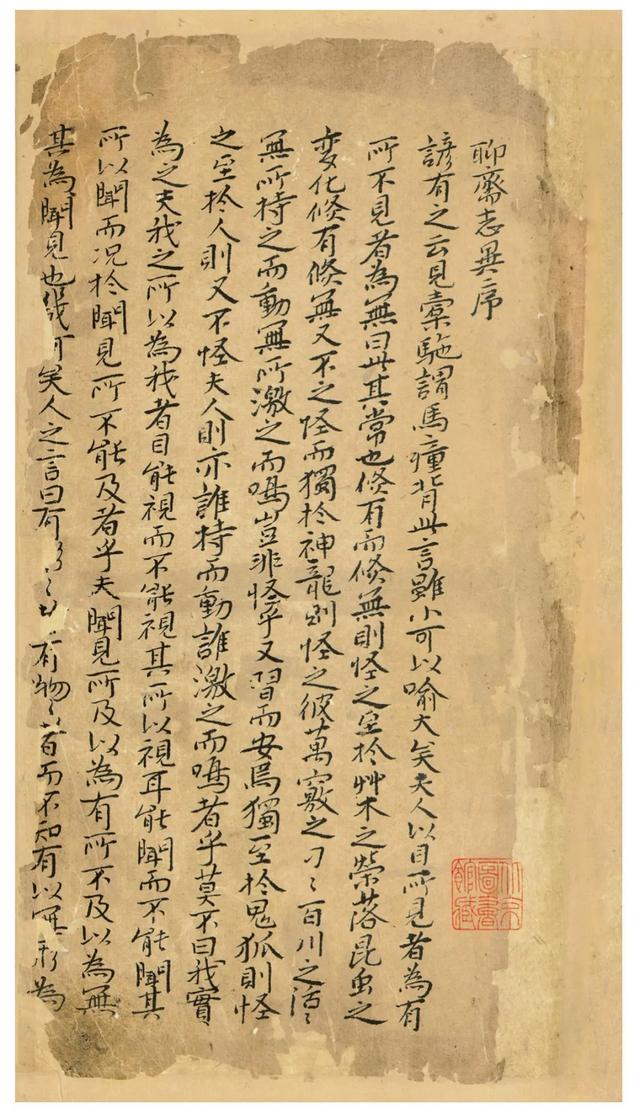 聊齋志異序
諺有之云見橐駞謂馬瘇背此言雖小可以喻大矣夫人以目所見者為有
所不見者為無曰此其常也倏有而倏無則怪之至於艸木之榮落昆虫之
变化倏有倏無又不之怪而獨於神龍則怪之彼萬竅之刁〻百川之活〻
無所持之而動無所激之而鳴豈非怪乎又習而安焉獨至於鬼狐則怪
之至於人則又不怪夫人則亦誰持而動誰激之而鳴者乎莫不曰我實
為之夫我之所以為我者目能視而不能視其所以視耳能聞而不能聞其
所以聞而况於聞見所不能及者乎夫聞見所及以為有所不及以為無
其為聞見也幾何矣人之言曰有形〻有物〻者而不知有以無形為
北京圖書館藏